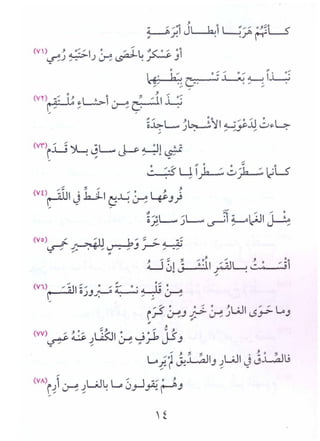 كَأَنَّهُمْ هَرَبًا أَبْطَالُ أَبْرَهَةٍ
أَوْ عَسْكَرٌ بِالْحَصَى مِنْ رَاحَتَيْهِ رُمِي (٧١)
نَبْذاً بِهِ بَعْدَ تَسْبِيحٍ بِبَطْنِهِمَا
نَبْذَ الْمُسَبِّحِ مِنْ أَحْشَاءِ مُلْتَقِمِ (٧٢)
جَاءَتْ لِدَعْوَتِهِ الْأَشْجَارُ سَاجِدَةً
تَمْشِي إِلَيْهِ عَلَى سَاقٍ بِلَا قَدَمِ (٧٣)
كَأَنَّمَا سَطَّرَتْ سَطْراً لِمَا كَتَبَتْ
فُرُوعُهَا مِنْ بَدِيعِ الْخَطِّ فِي اللَّقَمِ (٧٤)
مِثْلَ الْغَمَامَةِ أَنَّى سَارَ سَائِرَةً
تَقِيهِ حَرَّ وَطِيسٍ لِلْهَجِيرِ حَمِي (٧٥)
أَقْسَمْتُ بِالْقَمَرِ الْمُنْشَقِّ إِنَّ لَهُ
مِنْ قَلْبِهِ نِسْبَةً مَبْرُورَةَ الْقَسَمِ (٧٦)
وَمَا حَوَى الْغَارُ مِنْ خَيْرٍ وَمِنْ كَرَمٍ
وَكُلُّ طَرْفٍ مِنَ الْكُفَّارِ عَنْهُ عَمِي (٧٧)
فَالصِّدْقُ فِي الْغَارِ وَالصِّدِّيقُ لَمْ يَرِمَا
وَهُمْ يَقُولُونَ مَا بِالْغَارِ مِنْ أَرِمِ (٧٨)
١٤